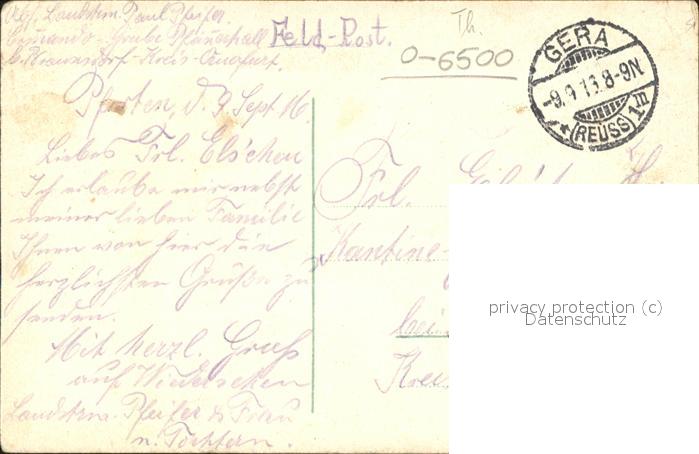 Abs. Landstrm. Paul Pfeifer.
Commando - Grube Pfännerhall
b. Braunsdorf - Kreis - Querfurt.
Feld-Post.
Th.
0-6500
GERA
-9.9.16.8-9N.
(REUSS)
Pforten, d. 9. Sept. 16.
Liebes Frl. Elschen
Ich erlaube mir nebst
meiner lieben Familie
Ihnen von hier die
herzlichsten Grüße zu
senden.
Mit herzl. Gruß
auf Wiedersehen
Landstrm. Pfeifer & Frau
u. Töchtern.
Frl.
Kantine
bei
Kreis
privacy protection (c)
Datenschutz